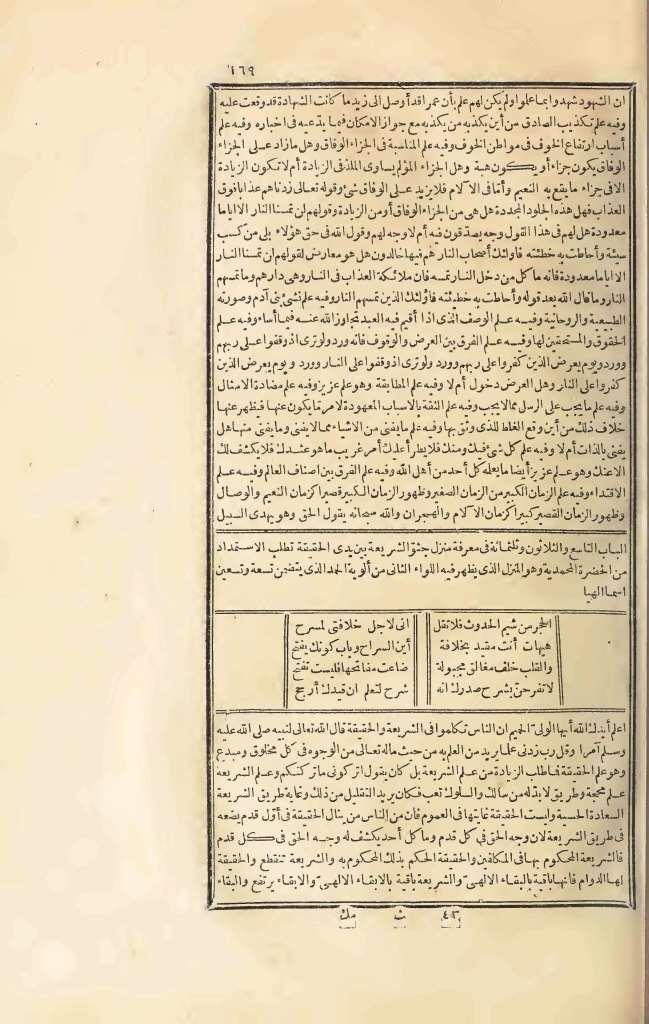 ١٦٩
ان الشهود شهدوا بما علموا ولم يكن لهم علم بأن عمرا قد أوصل الى زيد ما كانت الشهادة قد وقعت عليه
وفيه علم تكذيب الصادق من أين يكذبه من يكذبه مع جواز الامكان فيما يدّعيه فى اخباره وفيه علم
أسباب ارتفاع الخوف فى مواطن الخوف وفيه علم المناسبة فى الجزاء الوفاق وهل ما زاد على الجزاء
الوفاق يكون جزاء أو يكون هبة وهل الجزاء المؤلم يساوى الملذ فى الزيادة أم لا تكون الزيادة
الا فى جزاء ما يقع به النعيم وأمّا فى الآلام فلا يزيد على الوفاق شئ وقوله تعالى زدناهم عذابا فوق
العذاب فهل هذه الجلود المجددة هل هى من الجزاء الوفاق أو من الزيادة وقولهم لن تمسنا النار الا أياما
معدودة هل لهم فى هذا القول وجه يصدّقون فيه أم لا وجه لهم وقول الله فى حق هؤلاء بلى من كسب
سيئة وأحاطت به خطئته فاولئك أصحاب النار هم فيها خالدون هل هو معارض لقولهم لن تمسنا النار
الا أياما معدودة فانه ما كل من دخل النار تمسه فان ملائكة العذاب فى النار وهى دارهم وما تمسهم
النار وما قال الله بعد قوله وأحاطت به خطيئته فاولئك الذين تمسهم النار وفيه علم نشئ بنى آدم وصورته
الطبيعية والروحانية وفيه علم الوصف الذى اذا أقيم فيه العبد تجاوز الله عنه فيما أساء وفيه علم
الحقوق والمستحقين لها وفيه علم الفرق بين العرض والوقوف فانه ورد ولو ترى اذ وقفوا على ربهم
وورد ويوم يعرض الذين كفروا على ربهم وورد ولو ترى اذ وقفوا على النار وورد ويوم يعرض الذين
كفروا على النار وهل العرض دخول أم لا وفيه علم المطابقة وهو علم عزيز وفيه علم مضادة الامثال
وفيه علم ما يجب على الرسل مما لا يجب وفيه علم الثقة بالاسباب المعهودة لامر ما يكون عنها فيظهر عنها
خلاف ذلك من أين وقع الغلط للذى وثق بها وفيه علم ما يفنى من الاشياء مما لا يفنى وما يفنى منها هل
يفنى بالذات أم لا وفيه علم كل شئ فيك ومنك فلا يطرأ عليك أمر غريب ما هو عندك فلا يكشف لك
الا عنك وهو علم عزيز أيضا ما يعلمه كل أحد من أهل الله وفيه علم الفرق بين اصناف العالم وفيه علم
الاقتداء وفيه علم الزمان الكبير من الزمان الصغير وظهور الزمان الكبير قصيرا كزمان النعيم والوصال
وظهور الزمان القصير كبيرا كزمان الآلام والهجران والله سبحانه يقول الحق وهو يهدى السبيل
الباب التاسع والثلاثون وثلثمائة فى معرفة منزل جثوّ الشريعة بين يدى الحقيقة تطلب الاستمداد
من الحضرة المحمدية وهو المنزل الذى يظهر فيه اللواء الثانى من ألوية الحمد الذى يتضمن تسعة وتسعين
اسما الهيا
الحجر من شيم الحدوث فلا تقل
انى لاجل خلافتى لمسرح
هيهات أنت مقيد بخلافة
أين السراح وباب كونك يفتح
والقلب خلف مغالق مجبولة
ضاعت مفاتحها فليست تفتح
لا تفرحنّ بشرح صدرك انه
شرح لتعلم ان قيدك أرجح
اعلم أيدك الله أيها الولىّ الحميم ان الناس تكلموا فى الشريعة والحقيقة قال الله تعالى لنبيه صلى الله عليه
وسلم آمرا وقل رب زدنى علما يريد من العلم به من حيث ماله تعالى من الوجوه فى كل مخلوق ومبدع
وهو علم الحقيقة فما طلب الزيادة من علم الشريعة بل كان يقول اتركونى ما تركتكم وعلم الشريعة
علم محجة وطريق لا بدّ له من سالك والسلوك تعب فكان يريد التقليل من ذلك وغاية طريق الشريعة
السعادة الحسية وليست الحقيقة غايتها فى العموم فان من الناس من ينال الحقيقة فى أوّل قدم يضعه
فى طريق الشريعة لان وجه الحق فى كل قدم وما كل أحد يكشف له وجه الحق فى كل قدم
فالشريعة المحكوم بها فى المكلفين والحقيقة الحكم بذلك المحكوم به والشريعة تنقطع والحقيقة
لها الدوام فانها باقية بالبقاء الالهىّ والشريعة باقية بالابقاء الالهىّ والابقاء يرتفع والبقاء
٤٣ ث مك